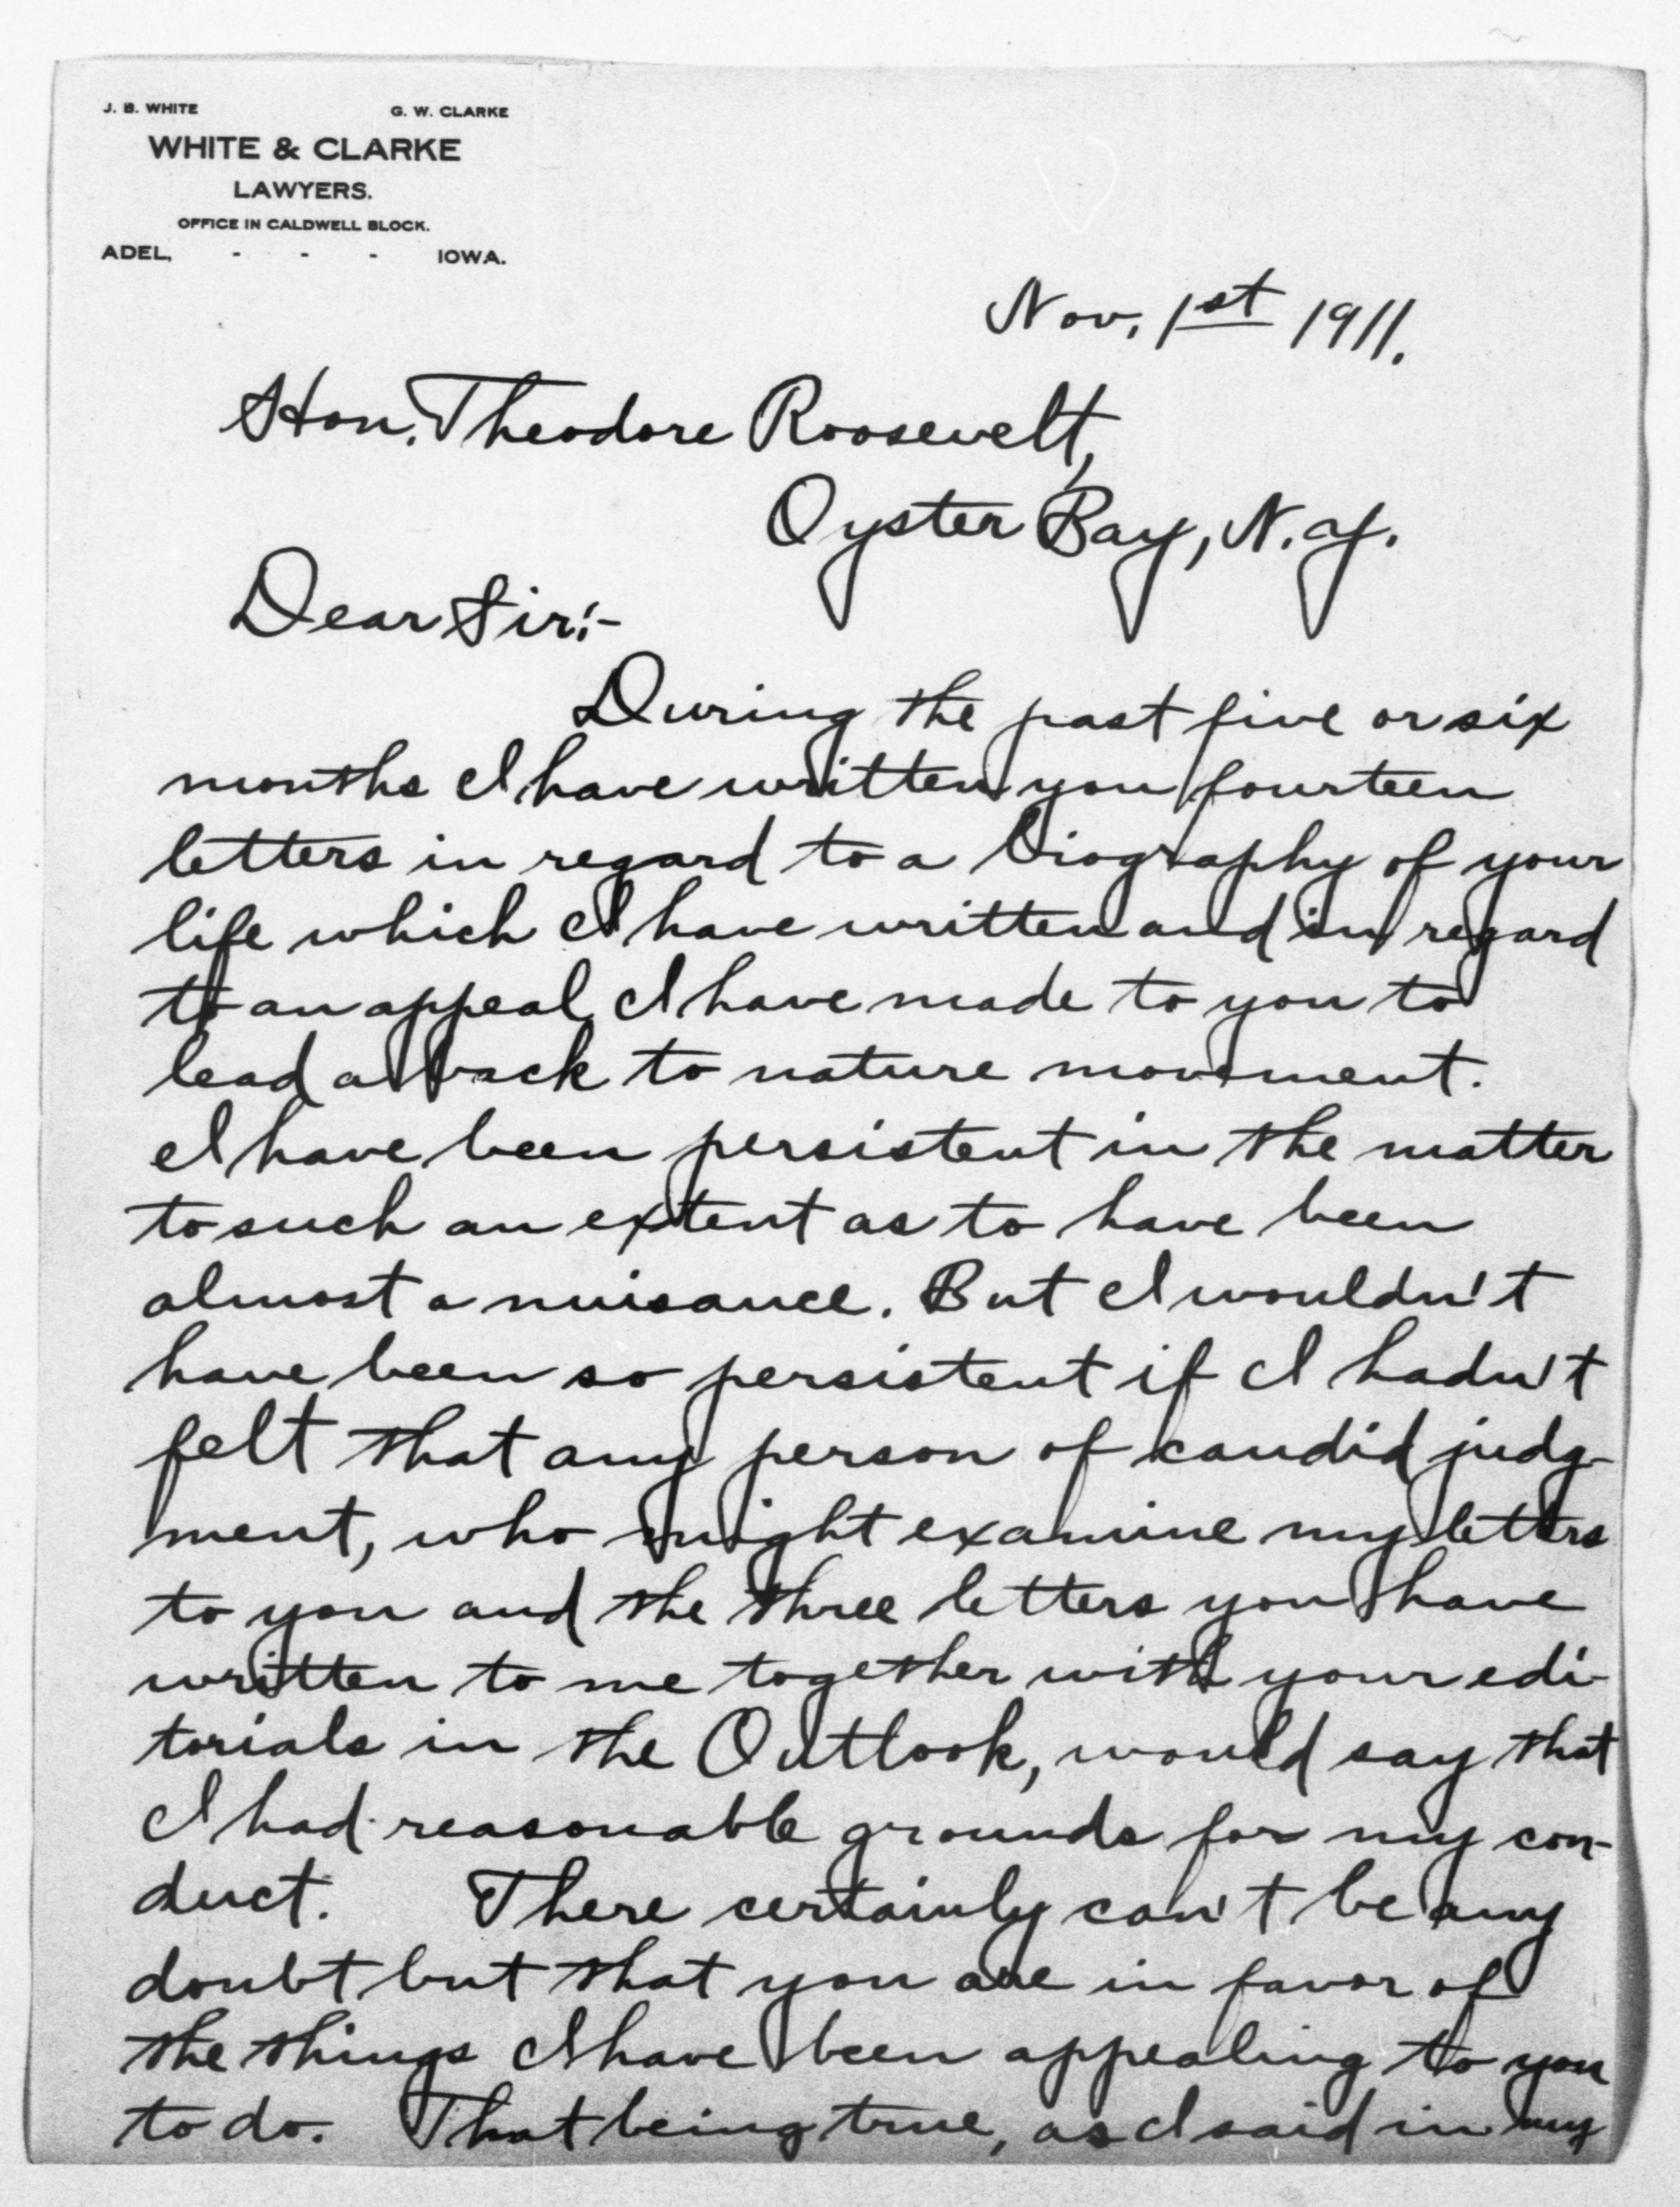 J. B. WHITE G. W. CLARKE
WHITE & CLARKE
LAWYERS.
OFFICE IN CALDWELL BLOCK.
ADEL, - - - IOWA.
Nov. 1st 1911.
Hon. Theodore Roosevelt,
Oyster Bay, N.Y.
Dear Sir:-
During the past five or six
months I have written you fourteen
letters in regard to a biography of your
life which I have written and in regard
to an appeal I have made to you to
lead a back to nature movement.
I have been persistent in the matter
to such an extent as to have been
almost a nuisance. But I wouldn't
have been so persistent if I hadn't
felt that any person of candid judg-
ment, who might examine my letters
to you and the three letters you have
written to me together with your edi-
torials in the Outlook, would say that
I had reasonable grounds for my con-
duct. There certainly can't be any
doubt but that you are in favor of
the things I have been appealing to you
to do. That being true, as I said in my